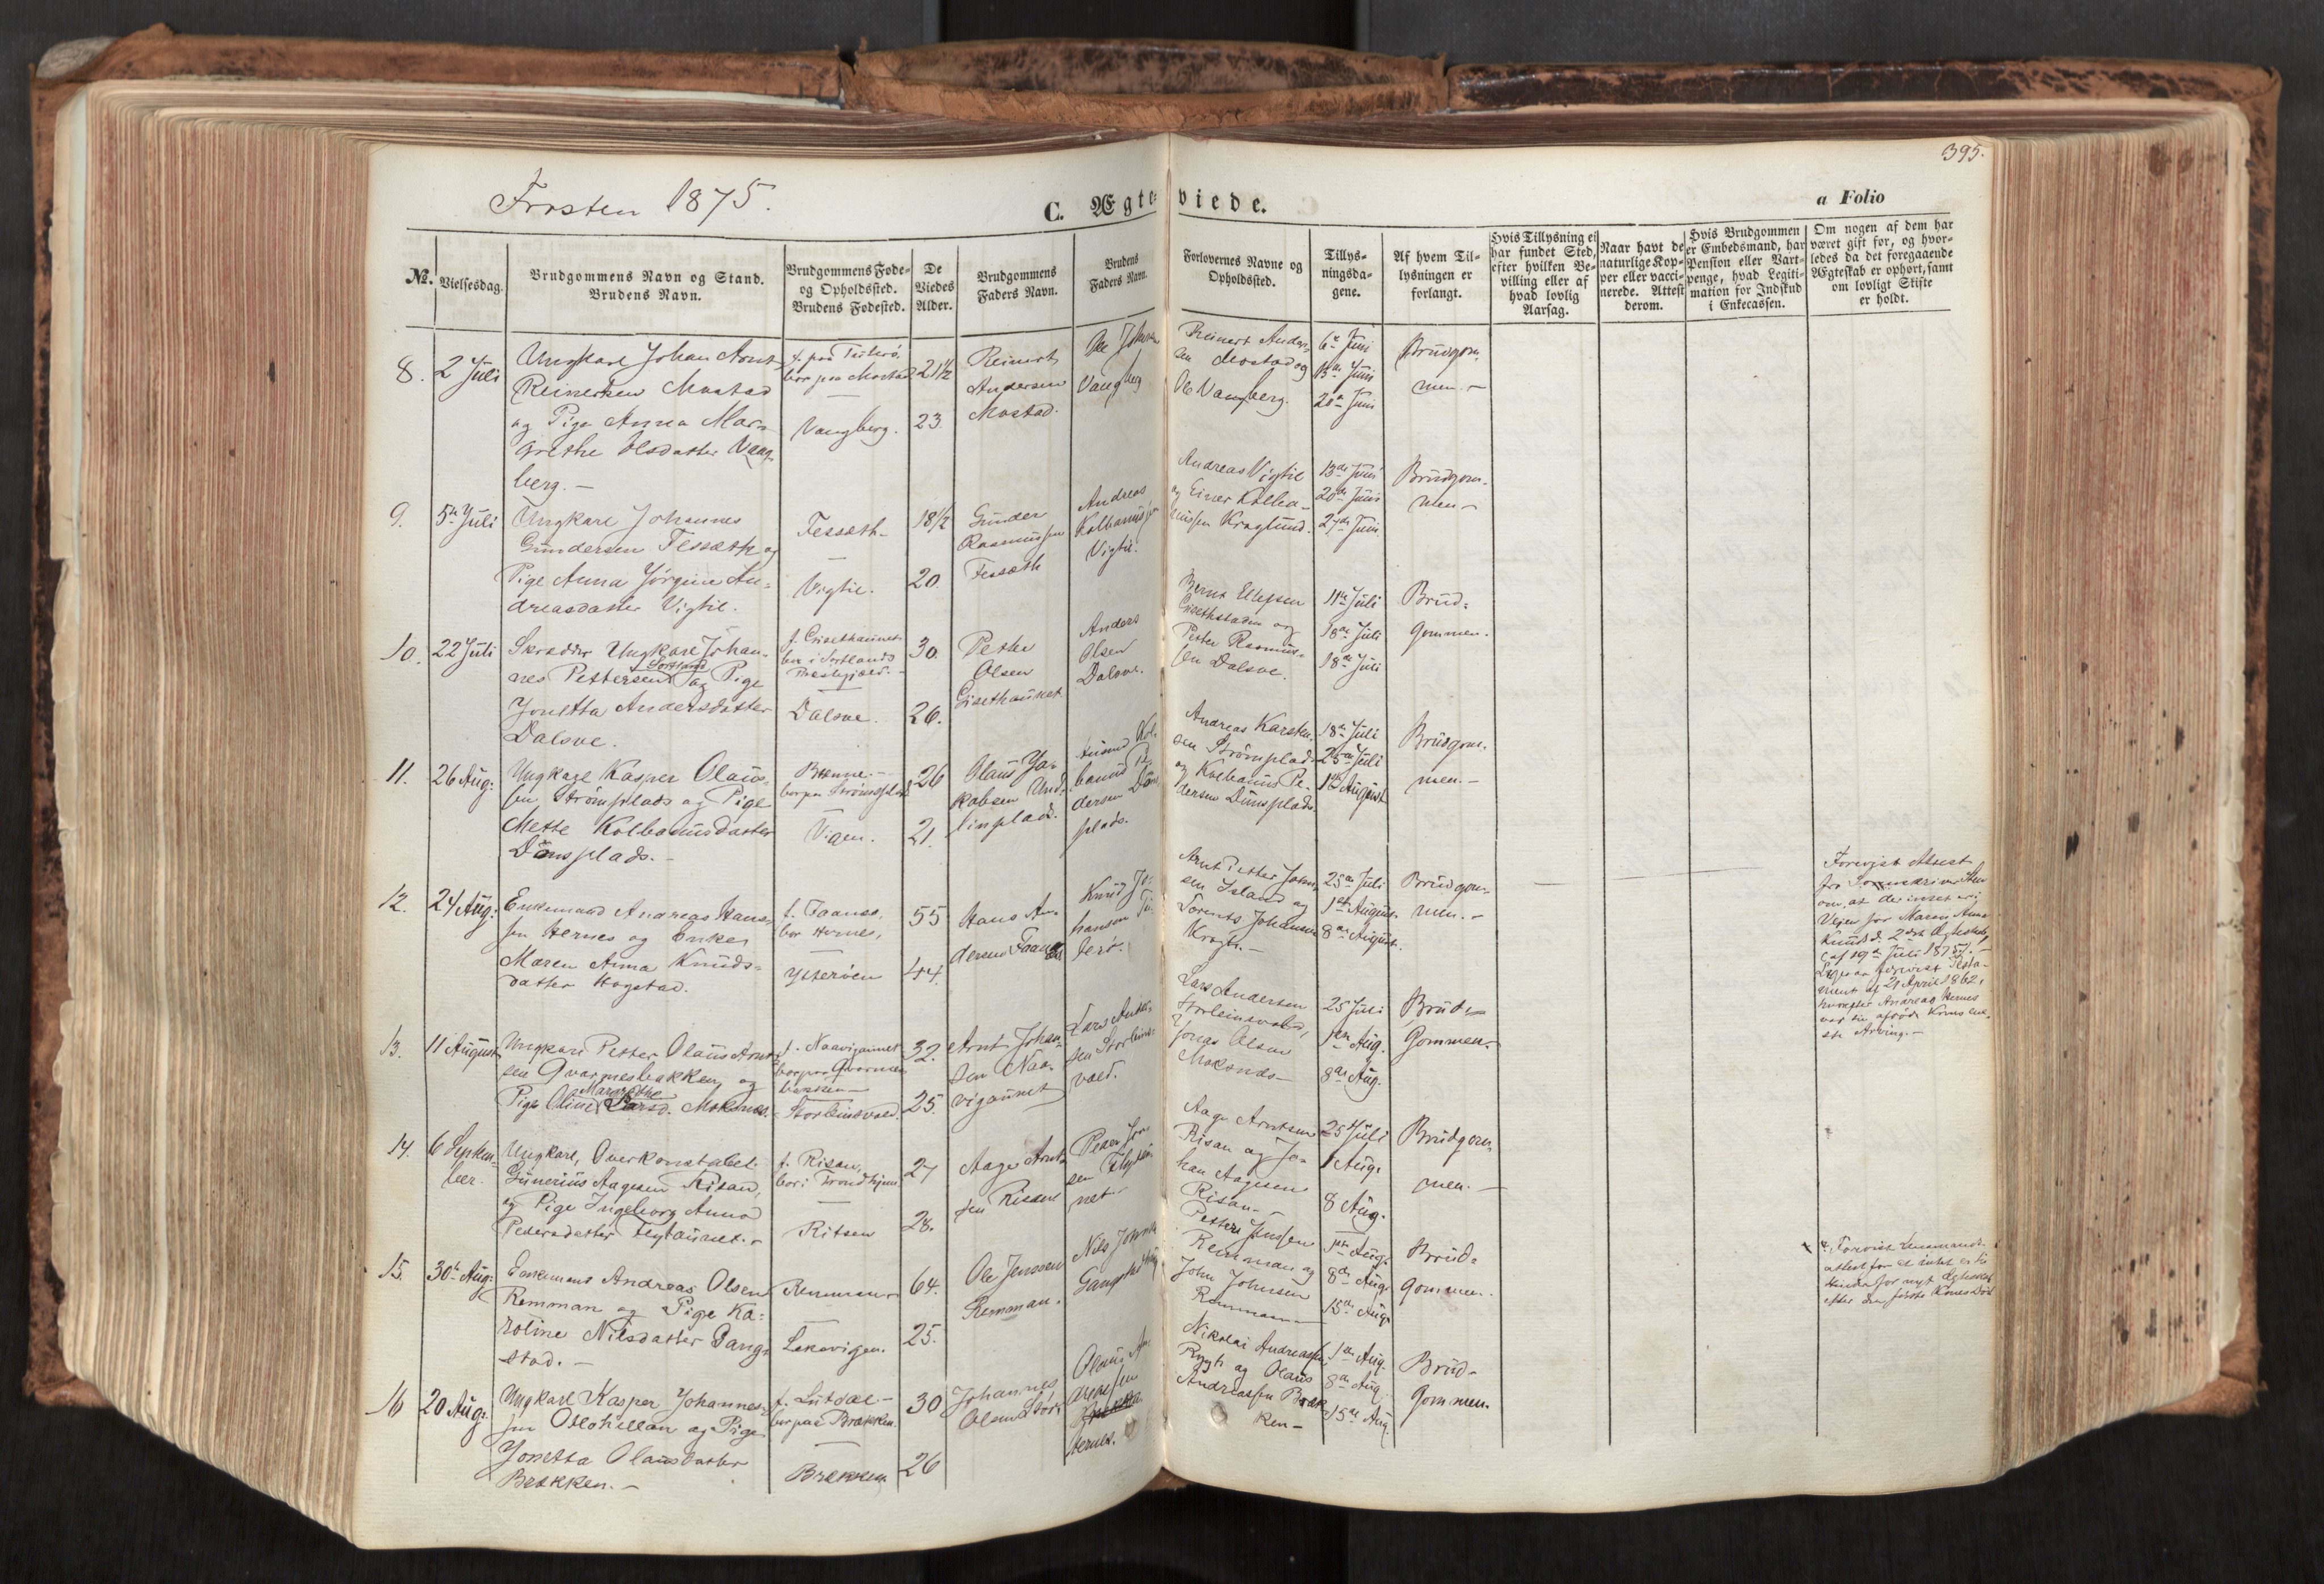 Frosten 1875.
C. Ægte-
viede.
a Folio
395.
№.
Vielsesdag.
Brudgommens Navn og Stand.
Brudens Navn.
Brudgommens Føde-
og Opholdssted.
Brudens Fødested.
De
Viedes
Alder.
Brudgommens
Faders Navn.
Brudens
Faders Navn.
Forlovernes Navne og
Opholdssted.
Tillys-
ningsda-
gene.
Af hvem Til-
lysningen er
forlangt.
Hvis Tillysning ei
har fundet Sted,
efter hvilken Be-
villing eller af
hvad lovlig
Aarsag.
Naar havt de
naturlige Kop-
per eller vacci-
nerede. Attest
derom.
Hvis Brudgommen
er Embedsmand, har
Pension eller Vart-
penge, hvad Legiti-
mation for Indskud
i Enkecassen.
Om nogen af dem har
været gift før, og hvor-
ledes da det foregaaende
Ægteskab er ophørt, samt
om lovligt Skifte
er holdt.
8.
2 Juli
Ungkarl Johan Arnt
Reinertsen Mostad
og Pige Anna Mar-
grethe Olsdatter Vang-
berg.-
f. paa Tuterø,
bor paa Mostad
Vangberg.
21½
23.
Reinert
Andersen
Mostad.
Ole Johnsen
Vangberg
Reinert Ander-
sen Mostad og
Ole Vangberg.
6te Juni
13de Juni
20de Juni
Brudgom-
men.-
9.
5te Juli
Ungkarl Johannes
Gundersen Fessæth og
Pige Anna Jørgine An-
dreasdatter Vigtil.
Fessæth-
Vigtil.
18½
20.
Gunder
Rasmussen
Fessæth
Andreas
Kolbanussen
Vigtil.
Andreas Vigtil
og Einer Kolba-
nussen Kraglund.
13de Juni
20de Juni
27de Juni
Brudgom-
men-
10.
22 Juli
Skrædder Ungkarl Johan-
nes Pettersen Sortland og Pige
Jonetta Andersdatter
Dalsve.
f. Gisethaunet
bor i Sortlands
Præstegjæld.-
Dalsve.
30.
26.
Petter
Olsen
Gisethaunet
Anders
Olsen
Dalsve.
Bernt Ellefsen
og
Petter Rasmus-
sen Dalsve.
11te Juli
18de Juli
18de Juli
Brud-
gommen.
11.
26 Aug:
Ungkarl Kasper Olaus-
sen Strømsplads og Pige
Mette Kolbanusdatter
Dønsplads.-
bor paa Strømsplads
Vigen.
26
21.
Olaus Ja-
kobsen Und-
linplads.
Kol-
banus Pe-
dersen Døns-
plads.
Andreas Karsten-
sen Strømplads
og Kolbanus Pe-
dersen Dønsplads.
18de Juli
25de Juli
1ste August
Brudgom-
men.-
12.
24 Aug:
Enkemand Andreas Hans-
sen Hernes og Enke
Maren Anna Knuds-
datter Hogstad.
f. Faanes,
bor Hernes,
Ytterøen
55
44.
Hans An-
dersen Faanes
Knud Jo-
hansen Tu-
terø.
Arnt Petter John-
sen Island og
Lorents Johansen
Kragh.-
25de Juli
1ste August.
8de August.
Brudgom-
men.-
Forevist Attest
om, at der intet er i
Veien for Maren Anna
Knudsd. 2det Ægteskab,
(af 19de Juli 1875).-
Ligesaa forevist Testa-
ment af 21 April 1862,
hvorefter Andreas Hernes
var sin afdøde Kones ene-
ste Arving.-
13.
11 August
Ungkarl Petter Olaus Arnt-
sen Qvarnesbakken og
Pige Oline Margrethe Larsd. Moksnes.
f. Naavigaunet
bor paa Qvarnes-
bakken-
Storleinsvald.
32.
25.
Arnt Johan-
sen Naa-
vigaunet
Lars Ander-
sen Storleins-
vald.
Lars Andersen
Storleinsvald,
Jonas Olsen
Moksnes-
25 Juli
1ste Aug.
8de Aug.
Brud-
gommen.
14.
6 Septem-
ber.
Ungkarl, Overkonstabel
Gunerius Aagesen Risan,
og Pige Ingeborg Anna
Pedersdatter Flytaunet.-
f. Risan,
bor i Trondhjem
Ritsen
27
28.
Aage Arnt-
sen Risan
Peder Jon-
sen Flytau-
net.-
Aage Arntsen
Risan og Jo-
han Aagesen
Risan.-
25 Juli
1 Aug.
8 Aug.
Brudgom-
men.-
15.
30te Aug:
Enkemand Andreas Olsen
Remman og Pige Ka-
roline Nilsdatter Gang-
stad.-
Remman
Lekavigen.
64.
25.
Ole Jenssen
Remman.
Nils Johnsen
Petter Jenssen
Remman og
John Johnsen
Remman
1ste Aug.
8de Aug.
15de Aug.
Brud-
gommen.
Forevist
attest for at intet er til
Hinder for nyt Ægteskab
efter den første Kones Død
16
20 Aug:
Ungkarl Kasper Johannes-
sen Oslohellan og Pige
Jonetta Olausdatter
Brækken.-
f. Lutdal-
bor paa Brækken
Brækken
30
26
Johannes
Olsen
Olaus An-
dreassen
Nikolai Andreassen
Rygh og Olaus
Andreassen Bræk-
ken-
1ste Aug.
8de Aug.
15de Aug.
Brud-
gommen.